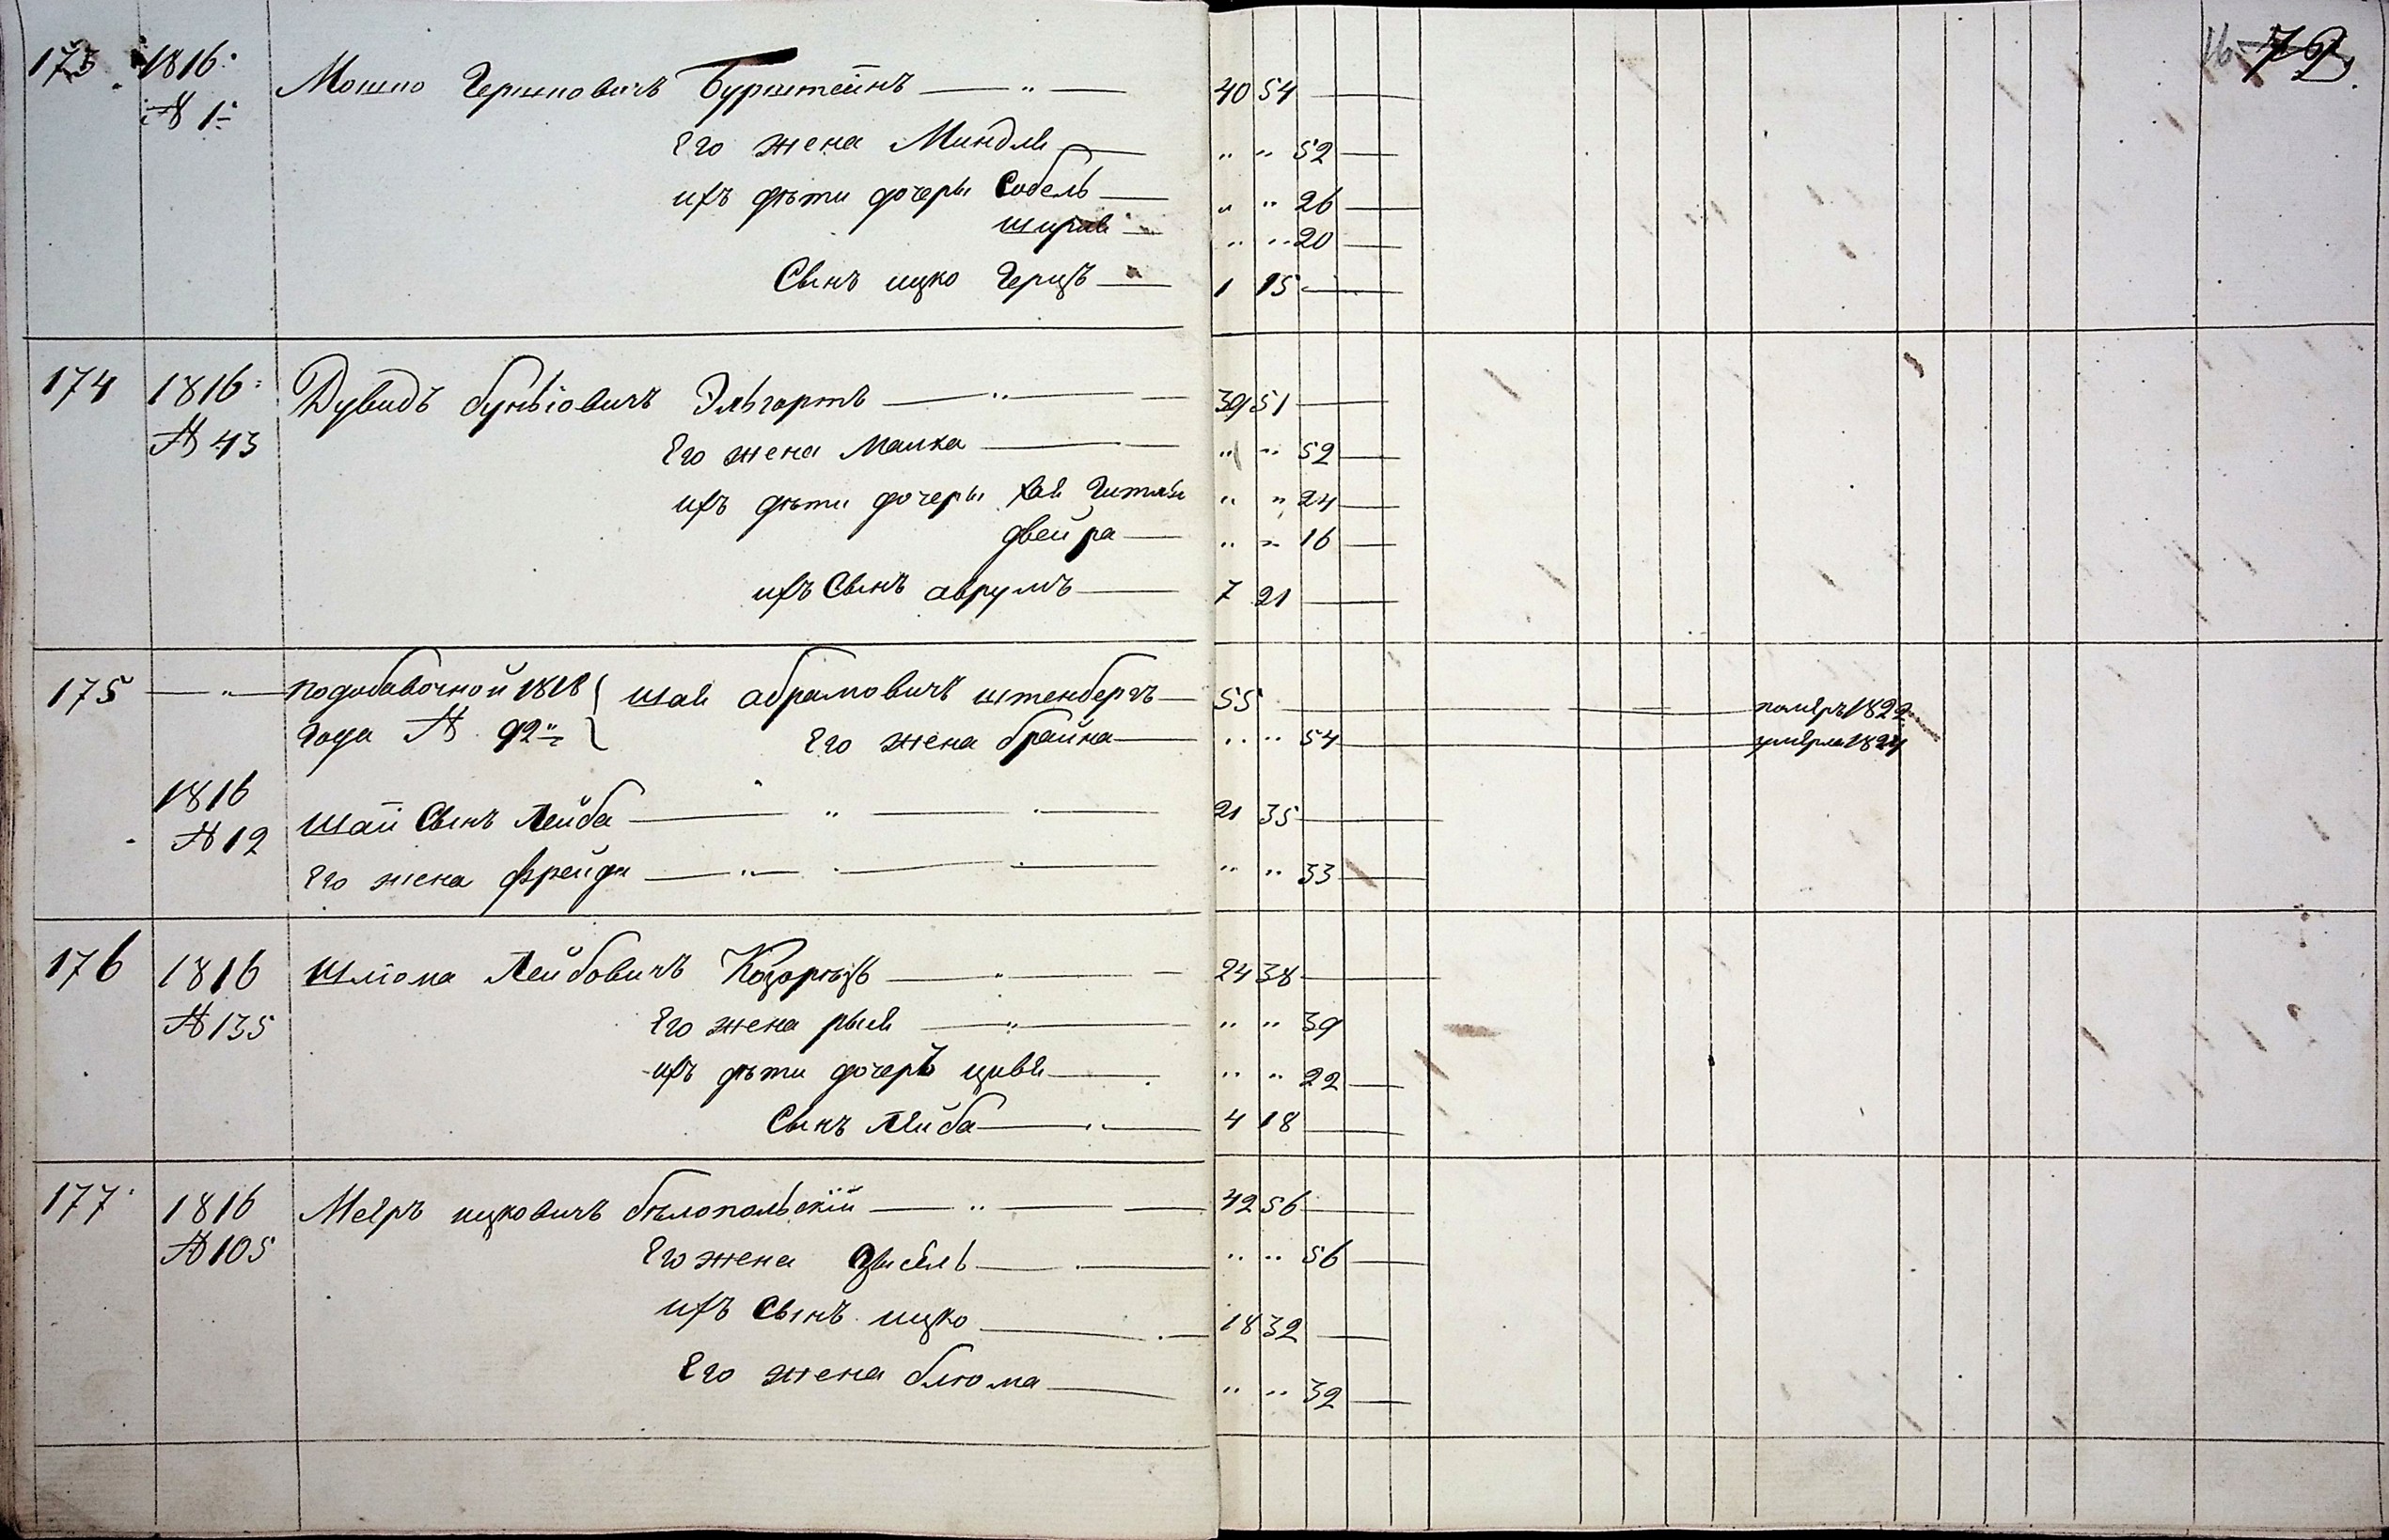 173 1816. Мошко Гершковичъ Бурштейнъ 40 54
№ 1 Его жена Миндля " " 52
ихъ дѣти дочеры Собель " " 26
" " 20
Сынъ ицко Герцъ 1 15
174 1816: Дувидъ Эльгортъ 39 51
№ 43 Его жена малка " " 52
ихъ дѣти дочеры хая Гитля " " 24
двейра " " 16
ихъ Сынъ аврумъ 7 21
175 " подобавочной 1818 шая абрамовичъ штенбергъ 55 померъ 1822
Года № 92 Его жена брайна " " 54 умерла 1824
1816 Шаи Сынъ Лейба " 21 35
№ 12 Его жена фрейда " " " 33
176 1816 Шліома Лейбовичъ 24 38
№ 135 Его жена рыся " " " 39
ихъ дѣти дочеръ цивя " " 22
Сынъ лейба 4 18
177 1816 Мееръ ицковичъ бѣлопольскій " 42 56
№ 105 Его жена " " 56
ихъ Сынъ ицко 18 32
Его жена блюма " " 32